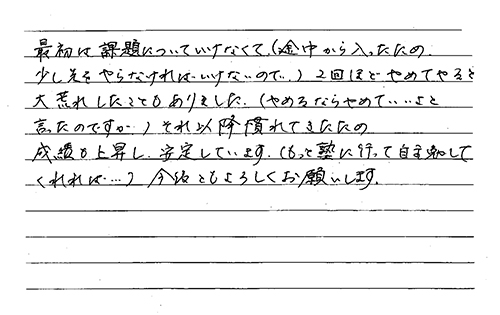 最初は課題についていけなくて、(途中から入ったため
少し先をやらなければいけないので。) 2回ほどやめてやると
大荒れしたこともありました。(やめるならやめていいよと
言ったのですが) それ以降慣れてきたため
成績も上昇し、安定しています。(もっと塾に行って自主勉して
くれれば…) 今後ともよろしくお願いします。